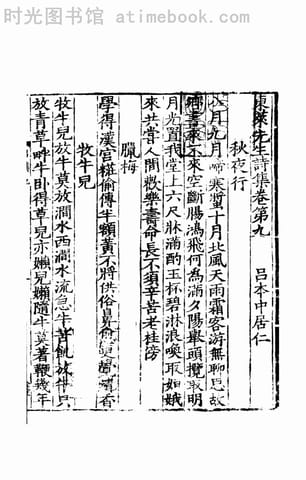 时光图书馆 - atimebook.com
東萊先生詩集卷第九
呂本中居仁
秋夜行
八月九月啼寒螿十月北風天雨霜客游無聊思故
鄉書來不來空斷腸鴻飛何為滿夕陽舉頭攬取明
月光置我堂上六尺牀滿酌玉杯碧淋浪喚取姮娥
來共嘗人間歡樂壽命長不須辛苦老桂傍
臘梅
學得漢宮糚偷傳半額黃不將供俗鼻愈更覺清香
牧牛兒
牧牛兒放牛莫放澗水西澗水流急牛苦飢放牛只
放青草畔牛臥得草兒亦嬾兒嬾隨牛莫著鞭幾年